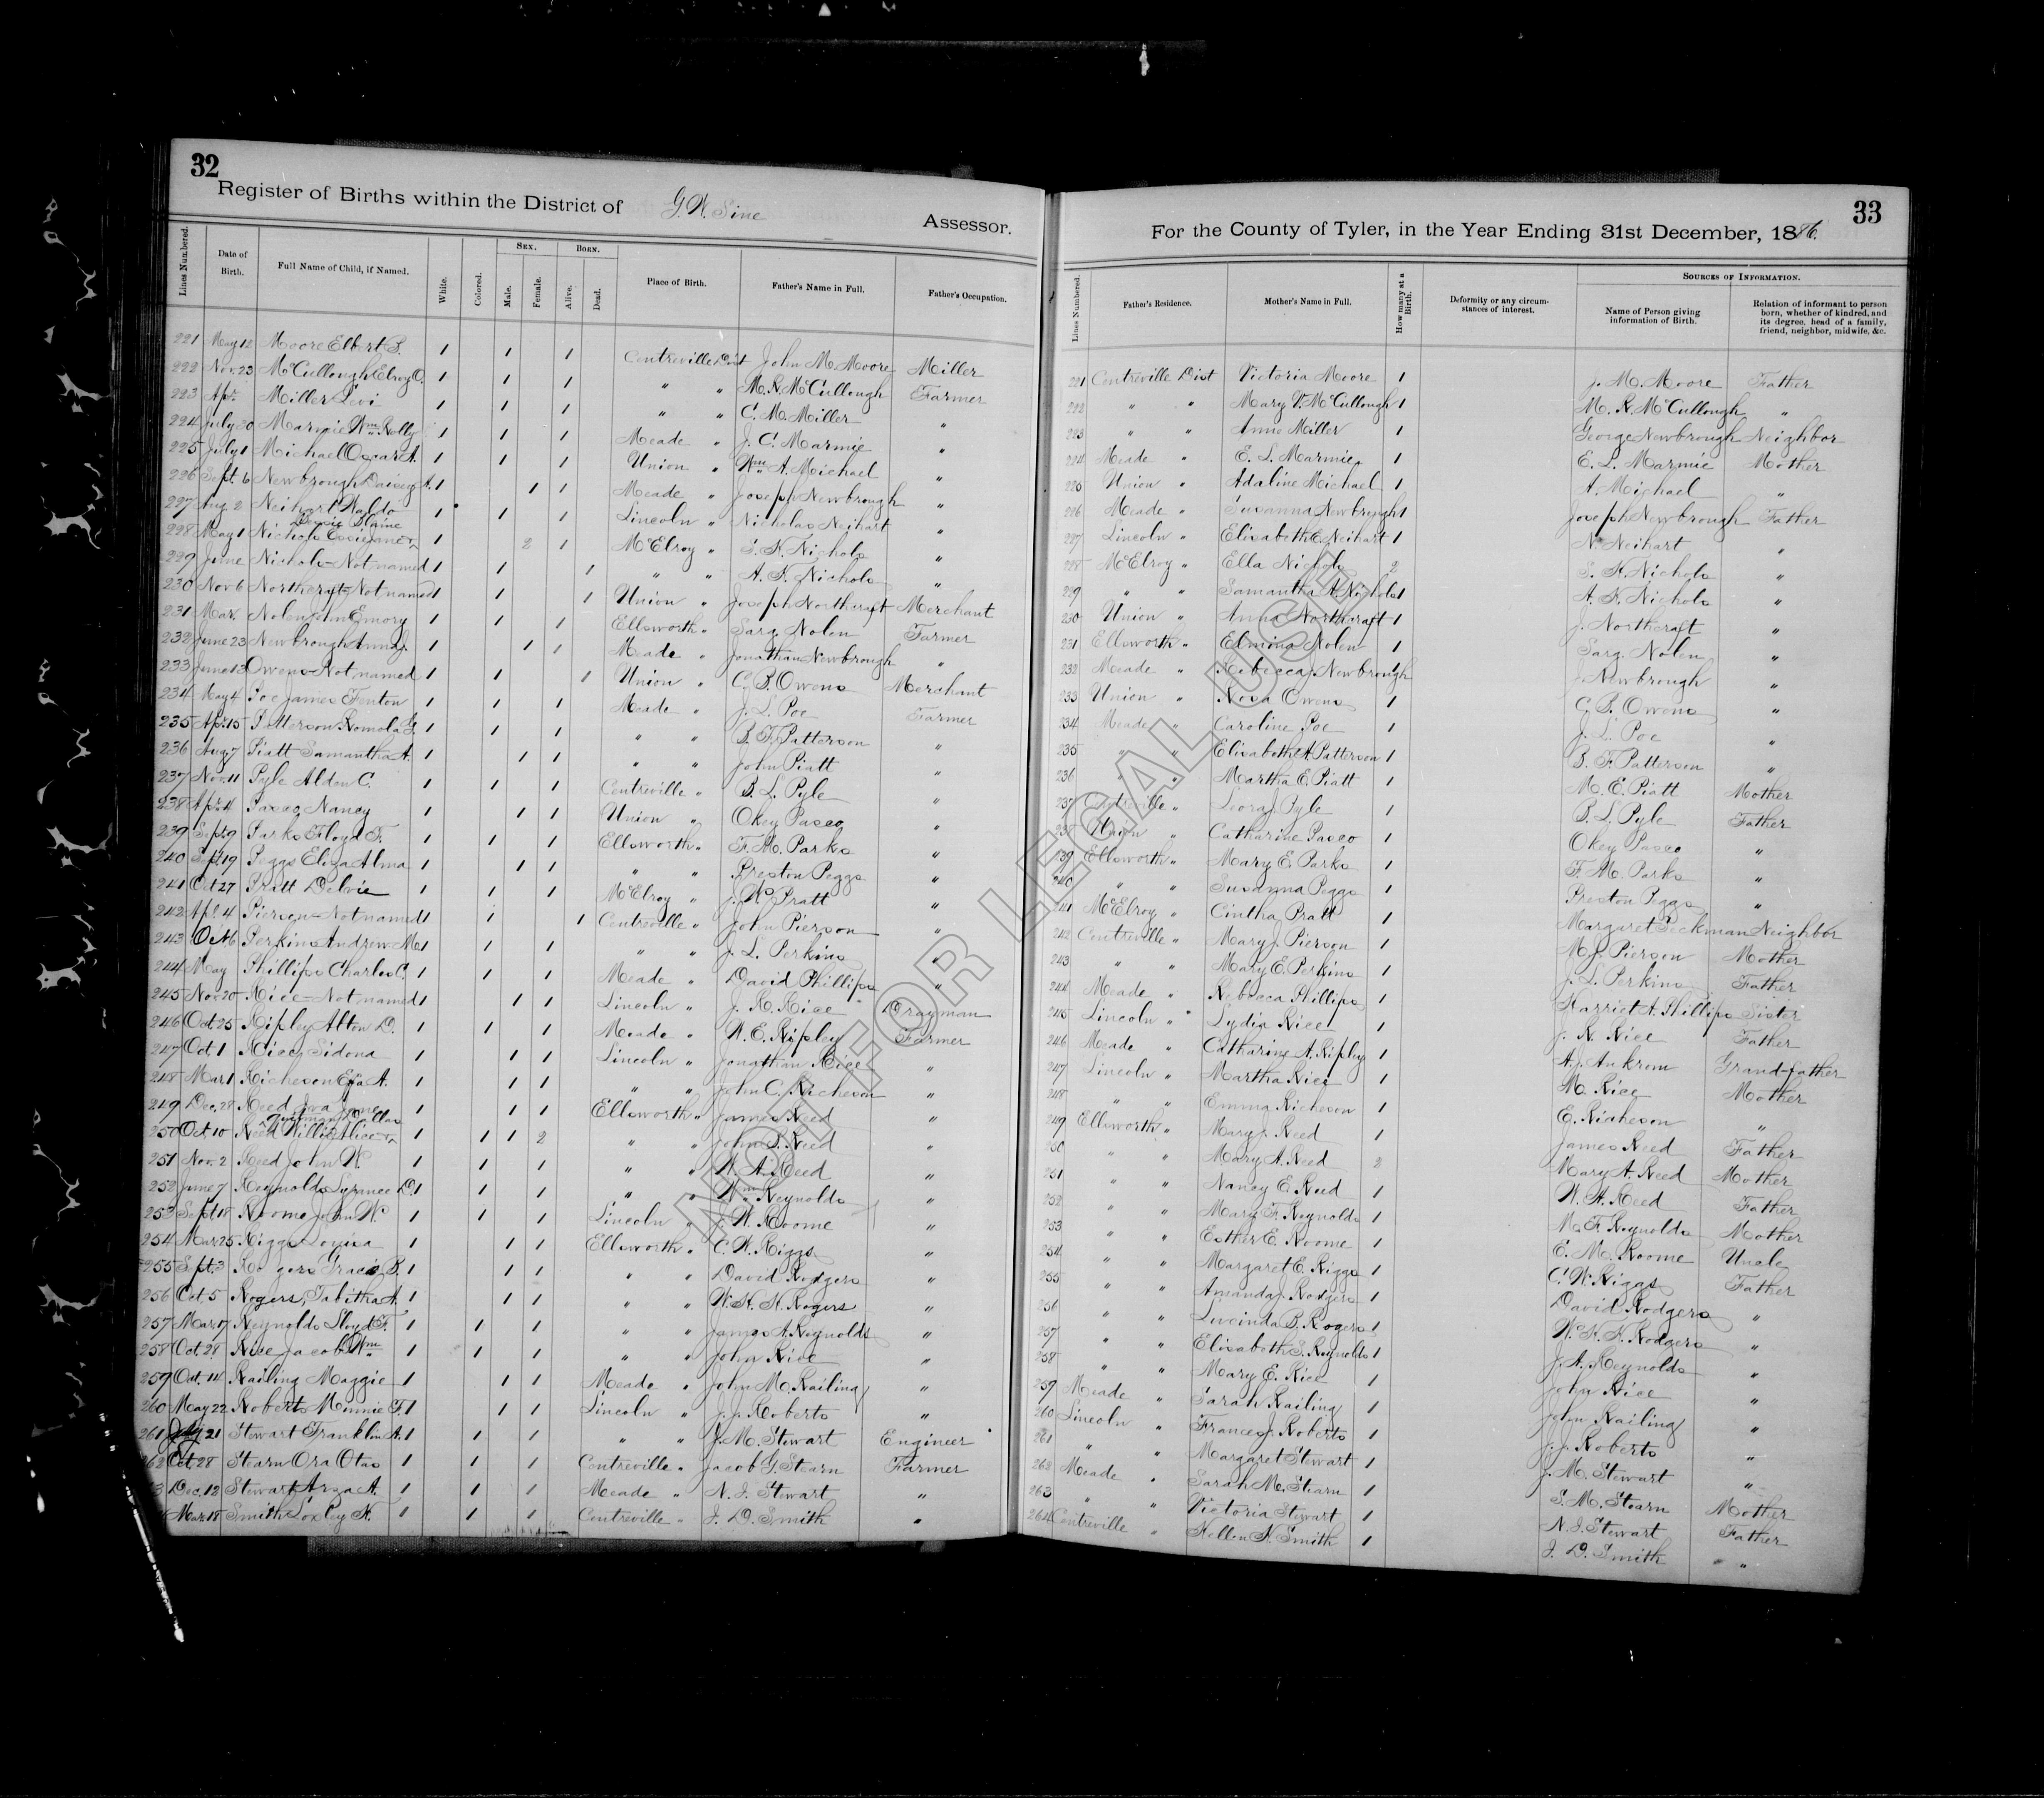 32
Register of Births within the District of G. W. Sine Assessor.
Lines Numbered. Date of Birth. Full Name of Child, if Named. White. Colored. Sex. Male. Female. Born. Alive. Dead. Place of Birth. Father's Name in Full. Father's Occupation.
221 May 12 Moore Elbert S. 1 1 1 Centreville Dist John M. Moore Miller
222 Nov. 23 McCullough Elroy O. 1 1 1 " " M. R. McCullough Farmer
223 Apr. Miller Levi 1 1 1 " " C. M. Miller "
224 July 20 Marmie Wm Rolly 1 1 1 Meade " J. C. Marmie "
225 July 1 Michael Oscar A. 1 1 1 Union " Wm A. Michael "
226 Sept. 6 Newbrough Daisey A. 1 1 1 Meade " Joseph Newbrough "
227 Aug 2 Neihart Waldo 1 1 1 Lincoln " Nicholas Neihart "
228 May 1 Nichols Essie Jane & Dessie Blaine 1 2 1 McElroy " S. F. Nichols "
229 June Nichols-Not named 1 1 1 " " A. F. Nichols "
230 Nov 6 Northcraft-Not named 1 1 1 Union " Joseph Northcraft Merchant
231 Mar. Nolen John Emory 1 1 1 Ellsworth " Sarg. Nolen Farmer
232 June 23 Newbrough Anna J. 1 1 1 Meade " Jonathan Newbrough "
233 June 13 Owens-Not named 1 1 1 Union " C. B. Owens Merchant
234 May 4 Poe James Fenton 1 1 1 Meade " J. L. Poe Farmer
235 Apr. 15 Patterson Romola G. 1 1 1 " " B. F. Patterson "
236 Aug. 7 Piatt Samantha A. 1 1 1 " " John Piatt "
237 Nov. 11 Pyle Alden C. 1 1 1 Centreville " B. L. Pyle "
238 Apr. 4 Pasco Nancy 1 1 1 Union " Okey Pasco "
239 Sept. 9 Parks Floyd F. 1 1 1 Ellsworth " F. M. Parks "
240 Sept 19 Peggs Eliza Alma 1 1 1 " " Preston Peggs "
241 Oct 27 Pratt Delvie 1 1 1 McElroy " J. W. Pratt "
242 Apl. 4 Pierson-Not named 1 1 1 Centreville " John Pierson "
243 Oct. 16 Perkins Andrew M. 1 1 1 " " J. L. Perkins "
244 May Phillips Charles C. 1 1 1 Meade " David Phillips "
245 Nov 20 Rice-Not named 1 1 1 Lincoln " J. R. Rice Drayman
246 Oct. 25 Ripley Alton D. 1 1 1 Meade " W. E. Ripley Farmer
247 Oct. 1 Rice Sidona 1 1 1 Lincoln " Jonathan Rice "
248 Mar 1 Richeson Effa A. 1 1 1 " " John C. Richeson "
249 Dec. 28 Reed Iva Jane 1 1 1 Ellsworth " James Reed "
250 Oct. 10 Reed Willie Alice & Dallas 1 1 1 2 " " John S. Reed "
251 Nov. 2 Reed John W. 1 1 1 " " W. A. Reed "
252 June 7 Reynolds Lyrance D. 1 1 1 " " Wm. Reynolds "
253 Sept. 18 Roome John W. 1 1 1 Lincoln " J. W. Roome "
254 Mar. 25 Riggs Louisa 1 1 1 Ellsworth " C. W. Riggs "
255 Sept. 3 Rogers Grace B. 1 1 1 " " David Rodgers "
256 Oct. 5 Rogers, Tabitha A. 1 1 1 " " W. H. H. Rogers "
257 Mar. 17 Reynolds Lloyd F. 1 1 1 " " James A. Reynolds "
258 Oct. 28 Rice Jacob Wm 1 1 1 " " John Rice "
259 Oct. 14 Railing Maggie 1 1 1 Meade " John M. Railing "
260 May 22 Roberts Minnie F. 1 1 1 Lincoln " J. J. Roberts "
261 July 21 Stewart Franklin A. 1 1 1 " " J. M. Stewart Engineer
262 Oct. 28 Stearn Ora Otas 1 1 1 Centreville " Jacob G. Stearn Farmer
3 Dec. 12 Stewart Arza A. 1 1 1 Meade " N. J. Stewart "
Mar. 18 Smith Loxley H. 1 1 1 Centreville " J. D. Smith "
33
For the County of Tyler, in the Year Ending 31st December, 1886.
Lines Numbered. Father's Residence. Mother's Name in Full. How many at a Birth. Deformity or any circumstances of interest. Sources of Information. Name of Person giving information of Birth. Relation of informant to person born, whether of kindred, and its degree, head of a family, friend, neighbor, midwife, &c.
221 Centreville Dist Victoria Moore 1 J. M. Moore Father
222 " " Mary V. McCullough 1 M. R. McCullough "
223 " " Anne Miller 1 George Newbrough Neighbor
224 Meade " E. L. Marmie 1 E. L. Marmie Mother
225 Union " Adaline Michael 1 A. Michael "
226 Meade " Susanna Newbrough 1 Joseph Newbrough Father
227 Lincoln " Elisabeth E. Neihart 1 N. Neihart "
228 McElroy " Ella Nichols 2 S. F. Nichols "
229 " " Samantha A. Nichols 1 A. F. Nichols "
230 Union " Anna Northcraft 1 J. Northcraft "
231 Ellsworth " Elmina Nolen 1 Sarg. Nolen "
232 Meade " Rebecca J. Newbrough 1 J. Newbrough "
233 Union " Rosa Owens 1 C. B. Owens "
234 Meade " Caroline Poe 1 J. L. Poe "
235 " " Elisabeth A. Patterson 1 B. F. Patterson "
236 " " Martha E. Piatt 1 M. E. Piatt Mother
237 Centreville " Leora J. Pyle 1 B. L. Pyle Father
238 Union " Catharine Pasco 1 Okey Pasco "
239 Ellsworth " Mary E. Parks 1 F. M. Parks "
240 " " Susanna Peggs 1 Preston Peggs "
241 McElroy " Cintha Pratt 1 Margaret Peckman Neighbor
242 Centreville " Mary J. Pierson 1 M. J. Pierson Mother
243 " " Mary E. Perkins 1 J. L. Perkins Father
244 Meade " Rebecca Phillips 1 Harriet A. Phillips Sister
245 Lincoln " Lydia Rice 1 J. R. Rice Father
246 Meade " Catharine A. Ripley 1 A. J. Ankrom Grand-father
247 Lincoln " Martha Rice 1 M. Rice Mother
248 " " Emma Richeson 1 E. Richeson "
249 Ellsworth " Mary J. Reed 1 James Reed Father
250 " " Mary A. Reed 2 Mary A. Reed Mother
251 " " Nancy E. Reed 1 W. A. Reed Father
252 " " Mary F. Reynolds 1 M. F. Reynolds Mother
253 " " Esther E. Roome 1 E. M. Roome Uncle
254 " " Margaret E. Riggs 1 C. W. Riggs Father
255 " " Amanda J. Rodgers 1 David Rodgers "
256 " " Lucinda B. Rogers 1 W. H. H. Rodgers "
257 " " Elisabeth S. Reynolds 1 J. A. Reynolds "
258 " " Mary E. Rice 1 John Rice "
259 Meade " Sarah Railing 1 John Railing "
260 Lincoln " Frances J. Roberts 1 J. J. Roberts "
261 " " Margaret Stewart 1 J. M. Stewart "
262 Meade " Sarah M. Stearn 1 S. M. Stearn Mother
263 " " Victoria Stewart 1 N. J. Stewart Father
264 Centreville " Hellen H. Smith 1 J. D. Smith "
NOT FOR LEGAL USE